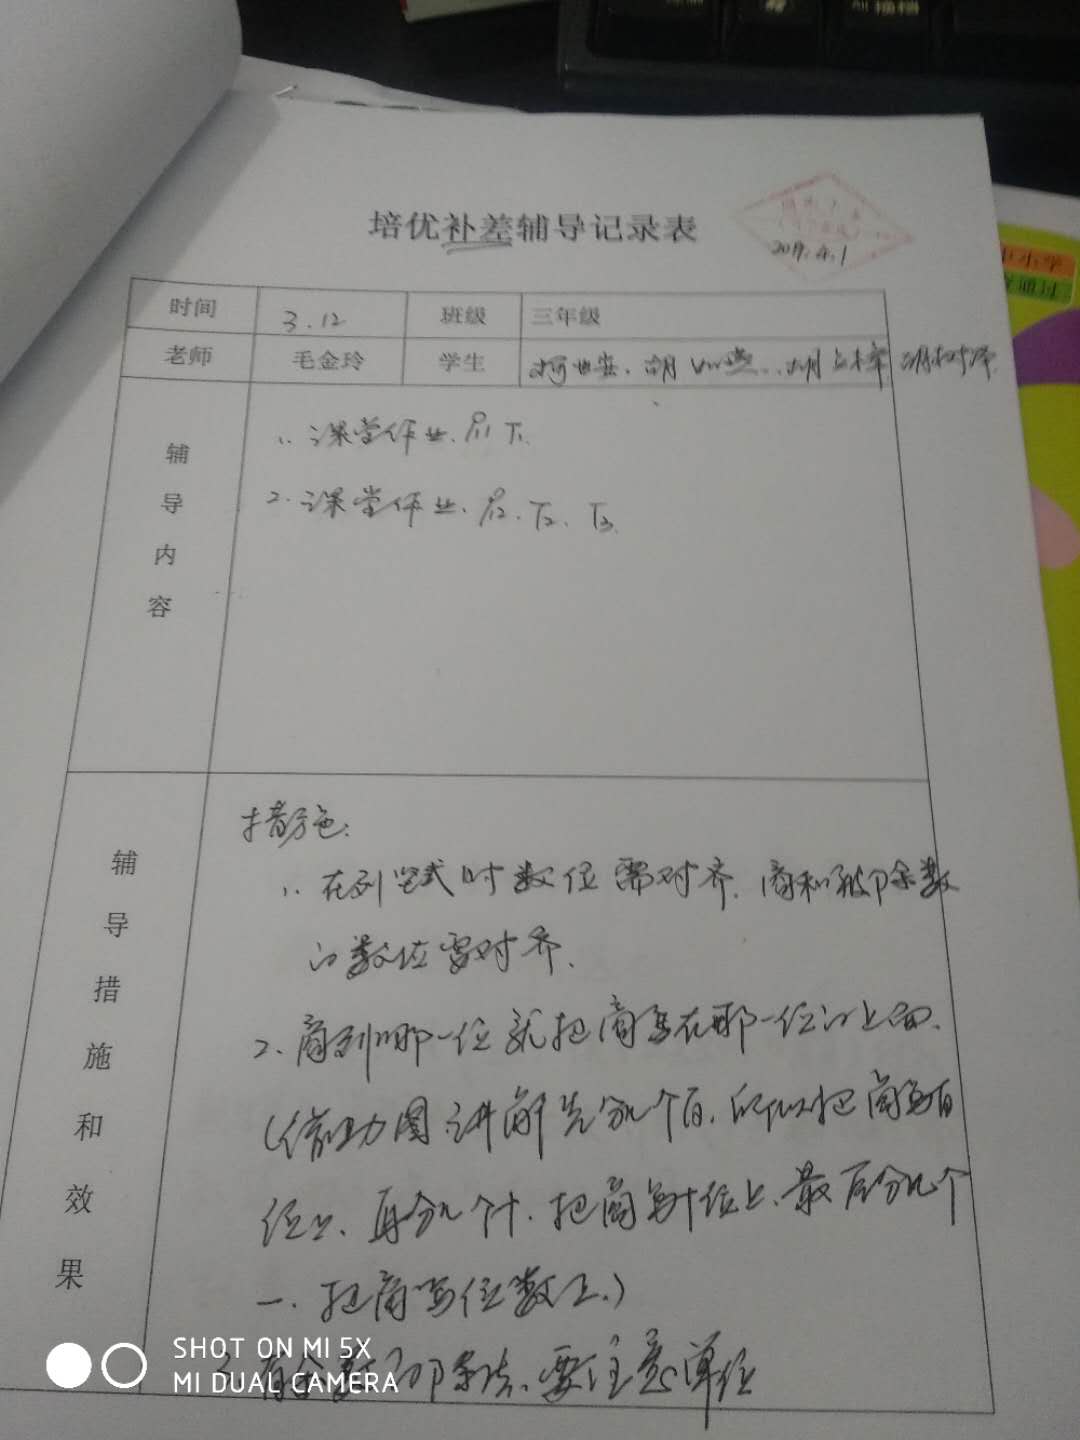 培优补差辅导记录表
2019.4.1
时间 3.12 班级 三年级
老师 毛金玲 学生
辅导内容
1. 课堂作业. P11 T1.
2. 课堂作业. P12. T2. T3.
辅导措施和效果
措施:
1. 在列竖式时数位需对齐. 商和被除数
的数位要对齐.
2. 商到哪一位就把商写在哪一位的上面.
(借助图讲解先分几个百. 所以把商写百
位上. 再分几个十. 把商写十位上. 最后分几个
一. 把商写位数上.)
3. 有余数的除法. 要注意单位
SHOT ON MI 5X
MI DUAL CAMERA